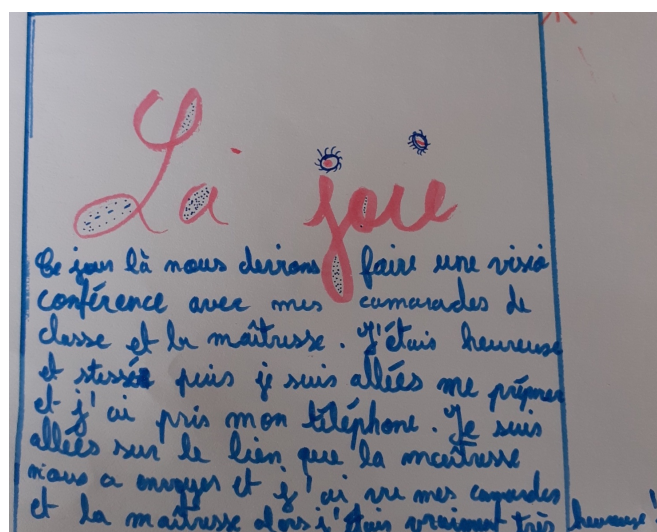 La joie
Ce jour là nous devions faire une visio
conférence avec mes camarades de
classe et la maîtresse. J'étais heureuse
et stressée puis je suis allées me préparer
et j'ai pris mon téléphone. Je suis
allées sur le lien que la maîtresse
nous a envoyer et j'ai vu mes camarades
et la maîtresse alors j'étais vraiment très heureuse !